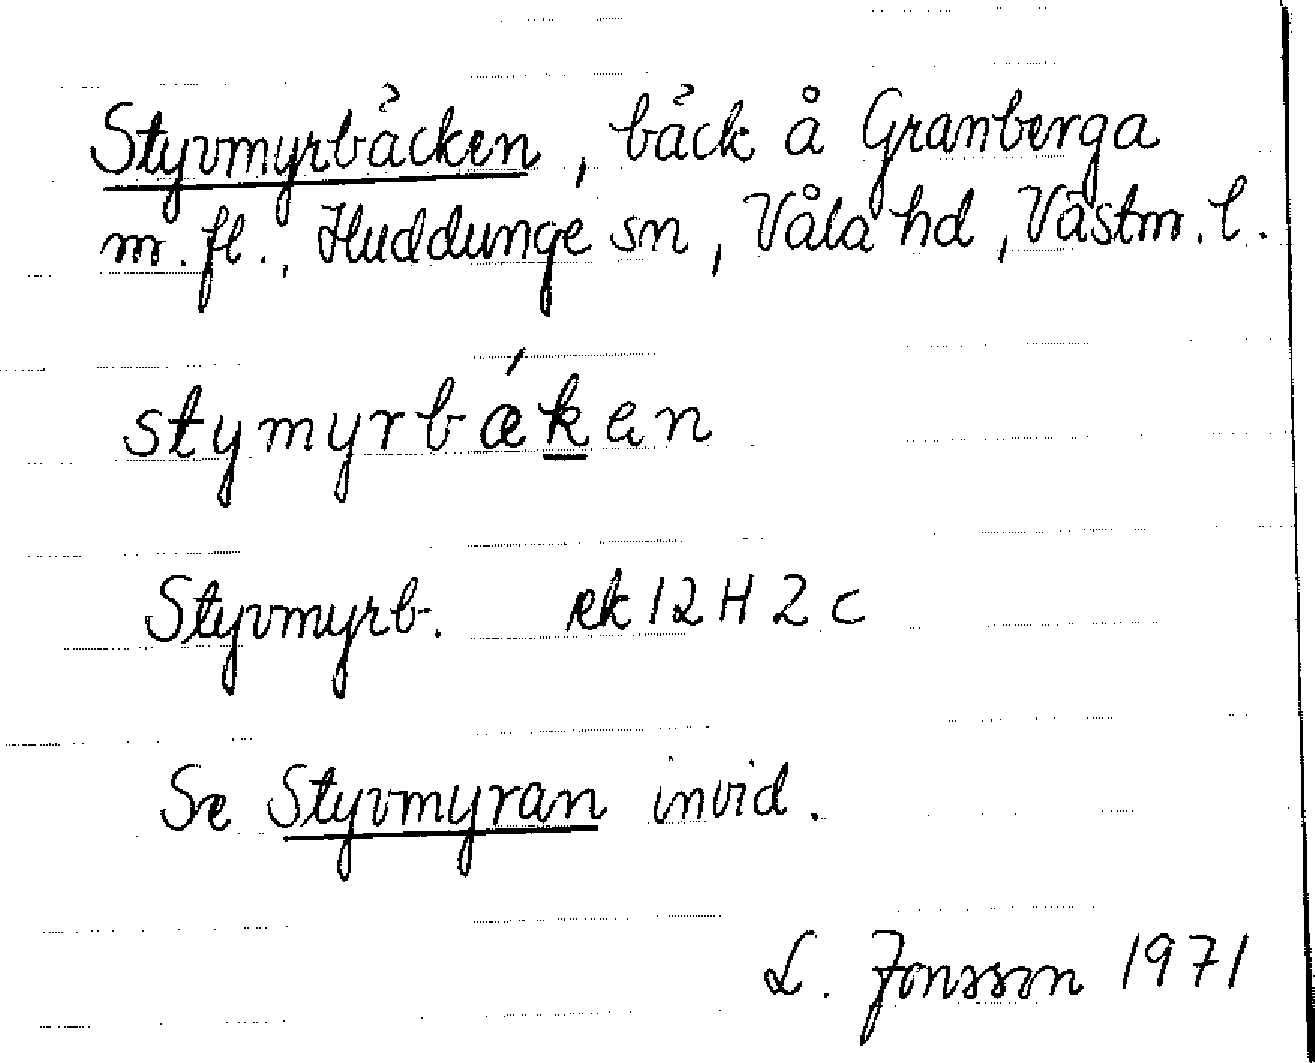 Styvmyrbäcken, bäck å Granberga
m.fl., Huddunge sn, Våla hd, Västm. l.
stymyrbǽken
Styvmyrb. ek 12 H 2 c
Se Styvmyran invid.
L. Jonsson 1971